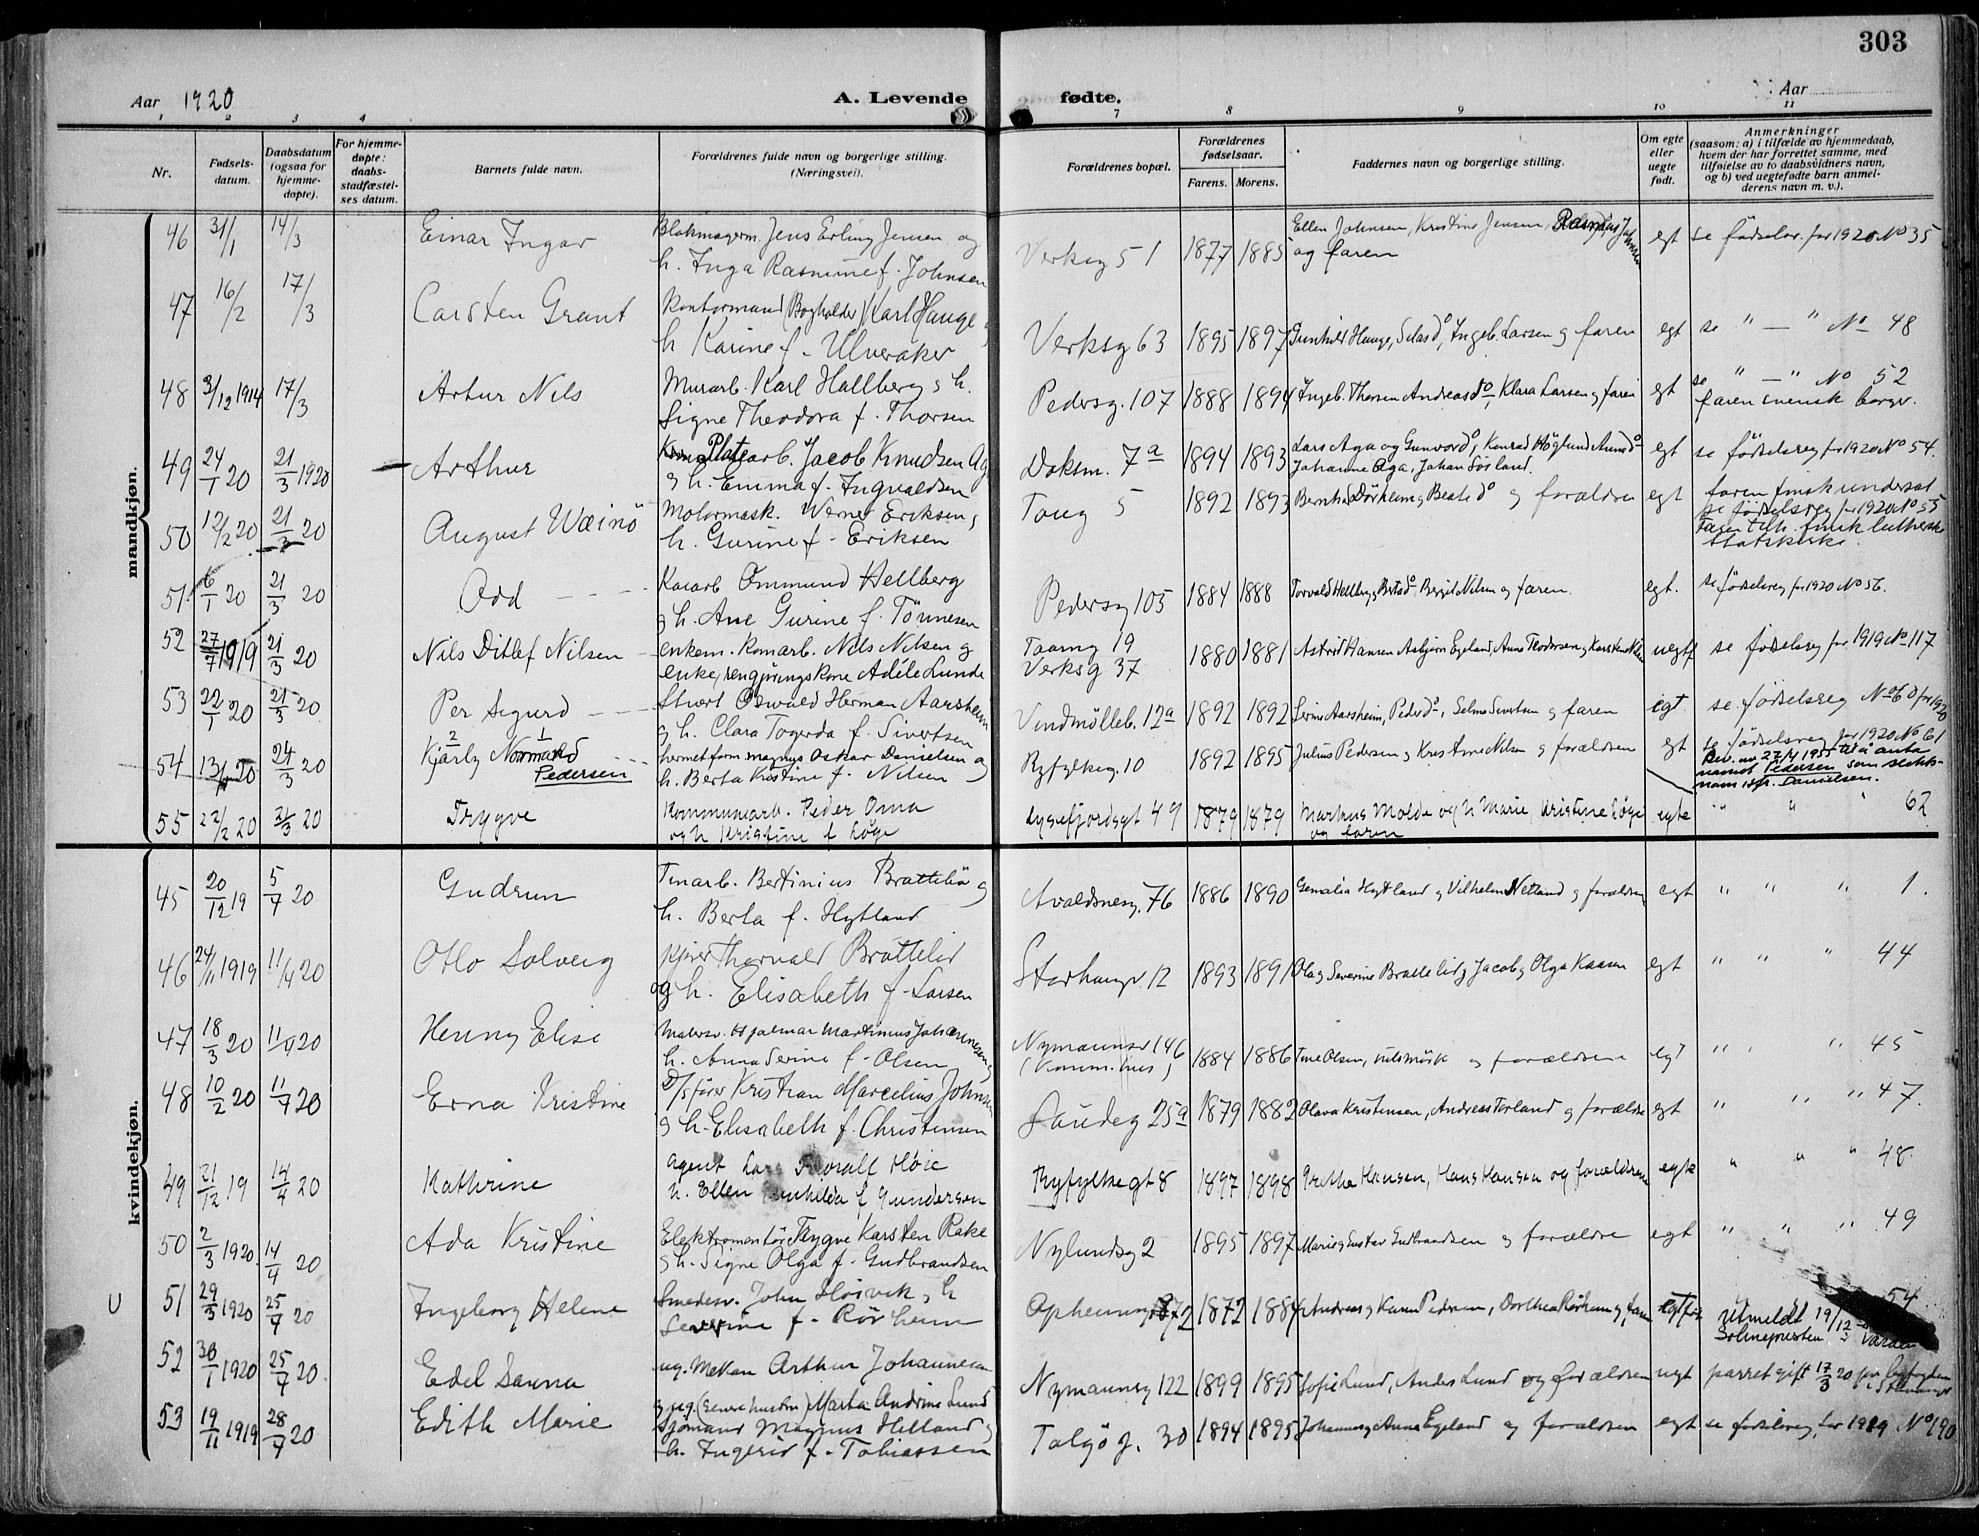 303
Aar 1920
A. Levende fødte.
Aar
1 2 3 4 7 8 9 10 11
Nr.
Fødsels-datum.
Daabsdatum (ogsaa for hjemme-døpte).
For hjemme-døpte: daabs-stadfæstel-ses datum.
Barnets fulde navn.
Forældrenes fulde navn og borgerlige stilling. (Næringsvei).
Forældrenes bopæl.
Forældrenes fødselsaar.
Farens. Morens.
Faddernes navn og borgerlige stilling.
Om egte eller uegte født.
Anmerkninger (saasom: a) i tilfælde av hjemmedaab, hvem der har forrettet samme, med tilføielse av to daabsvidners navn, og b) ved uegtefødte barn anmel-derens navn m. v.).
mandkjøn.
46 31/1 14/3 Einar Ingar Blokmagerm. Jens Erling Jensen og Verksg 51 1877 1885 Ellen Johnsen, Kristine Jensen, Rasmus Johnsen egt se fødselsr. for 1920 No 35
h. Inga Rasmine f. Johnsen og faren
47 16/2 17/3 Carsten Grant Kontormand (Bogholder) Karl Hauge Verksg 63 1895 1897 Gunhild Hauge, Silas do, Ingeb. Larsen og faren egt se " — " No 48
h Karine f. Ulveraker
48 3/12 1914 17/3 Artur Nils Murarb. Karl Hallberg & h. Pedersg. 107 1888 1894 Ingeb. Thorsen Andreas do, Klara Larsen og faren egt se " — " No 52
Signe Theodora f. Thorsen faren svensk borger.
49 24/1 20 21/3 1920 Arthur Platearb. Jacob Knudsen Aga Doksm. 7a 1894 1893 Lars Aga og Gunvor do, Konrad Höglund Anna do egt se fødselsreg for 1920 No 54.
& h. Emma f. Ingvaldsen Johanne Aga, Johan Sösland.
50 12/2 20 21/3 20 August Wäinö Motormask. Werner Eriksen & Toug 5 1892 1893 Bernhard Dörheim & Beate do og forældren egt faren finsk undersåt
h. Gurine f. Eriksen se fødselsreg for 1920 No 55
Faren tilh. finsk lutherske
statskirke.
51. 6/1 20 21/3 20 Odd Kaiarb Ommund Hellberg Pedersg 105 1884 1888 Torvald Hellberg Berta do, Bergit Nilsen og faren. egt. se fødselsreg for 1920 No 56.
& h. Ane Gurine f. Tönnesen
52 27/7 1919 21/3 20 Nils Ditlef Nilsen enkem. Komarb. Nils Nilsen og Taarng 19 1880 1881 Astrid Hansen Asbjörn Egeland, Anna Thorsen og Karsten Nilsen uegtf se fødselsreg for 1919 No 117
enke, rengjøringskone Adéle Lunde Verksg 37
53 22/1 20 21/3 20 Per Sigurd Stuert Osvald Herman Aarsheim Vindmölleb. 12a 1892 1892 Serine Aarsheim, Peder do, Selma Sivertsen og faren egt. se fødselsreg No 60 for 1920
& h. Clara Togerda f. Sivertsen
54 13/1 20 24/3 20 Kjarly Normand Pedersen hermetform Magnus Oskar Danielsen og Ryfylkeg. 10 1892 1895 Julius Pedersen & Kris Arne Nilsen og forældren egt se fødselsreg for 1920 No 61
h. Berta Kristine f. Nilsen Bev. av 27/4 1955 til å anta
navnet Pedersen som slekts-
navn istf. Danielsen.
55 22/2 20 21/3 20 Trygve Kommunearb. Peder Oma Lysefjordsgt 49 1879 1879 Markus Molde og h Marie, Kristine Löge egte " " " 62
og h Kristine f Löge og faren
kvindekjøn.
45 20/12 19 5/4 20 Gudrun Tinarb. Bertinius Brattebö og Avaldsnesg. 76 1886 1890 Gemalia Hytland & Vilhelm Netland og forældren egt " " " 1.
h. Berta f. Hytland
46 24/11 1919 11/4 20 Otlo Solveig kjører Thorvald Brattelid Storhaugv. 12 1893 1891 Ola & Severine Brattelid, Jacob & Olga Kaasen egt " " " 44
og h. Elisabeth f. Larsen
47 18/3 20 11/4 20 Henny Elise Malersv. Hjalmar Martinius Johannesen & Nymannsv 146 1884 1886 Tine Olsen, og forældrene egt " " 45
h. Anna Serine f. Olsen (Komm. hus)
48 10/2 20 11/4 20 Erna Kristine D/s fører Kristian Marcelius Johnsen Saudeg 25a 1879 1882 Olava Kristensen, Andreas Torland og forældre egt " " " 47.
& h. Elisabeth f. Christensen
49 21/12 19 14/4 20 Kathrine Agent Lars Thoralf Høie Ryfylkegt 8 1897 1898 Grethe Hansen, Hans Hansen og forældrene egte " " " 48
h. Ellen f Gundersen
50 2/3 1920 14/4 20 Ada Kristine Elektromontör Trygve Karsten Rake Nylundsg 2 1895 1897 Marie & Gustav Gudbrandsen og forældre egt " " " 49
& h. Signe Olga f. Gudbrandsen
U 51 29/3 1920 25/4 20 Ingeborg Helene Smedesv. John Høivik & h 1872 1884 Andreas & Karen Pedersen, Dorthea Rörheim og faren 54
Severine f. Rörheim Utmeldt 19/12
Sokneprestan i Varden
52 30/1 1920 25/4 20 Edel Sanna ug. Mekan Arthur Johannesen Nymannsg 122 1899 1895 Sofie Lund, Anders Lund og forældren uegt parret gift 17/3 20 for byfogden
& pg. (Eenerhusten) Marta Andrine Lund i Stavanger
53 19/11 1919 28/4 20 Edith Marie Sjømand Magnus Helland & Talgö g. 30 1894 1895 Johannes & Anna Egeland og forældren egt se fødselsreg. for 1919 No 190
h. Ingerid f. Tobiassen